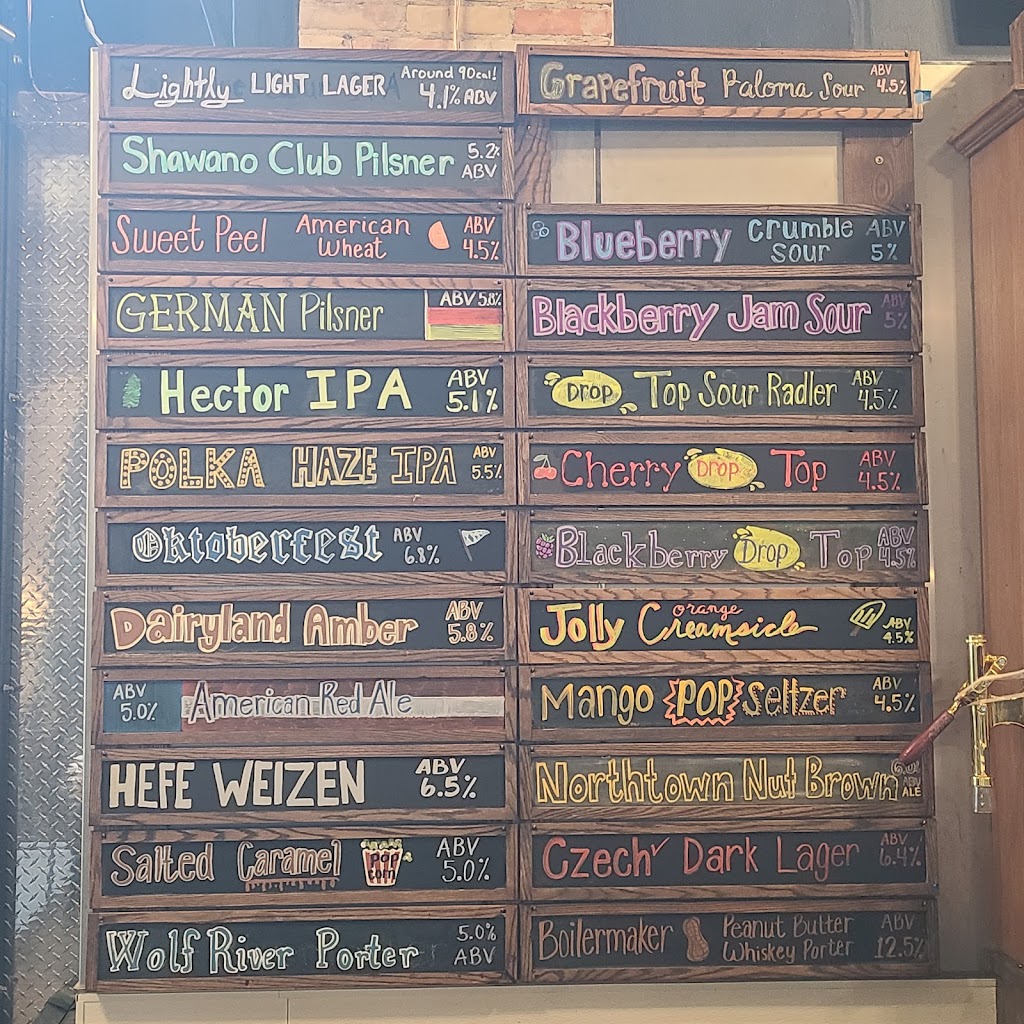 Lightly LIGHT LAGER Around 90cal! 4.1% ABV
Shawano Club Pilsner 5.2% ABV
Sweet Peel American Wheat ABV 4.5%
GERMAN Pilsner ABV 5.8%
Hector IPA ABV 5.1%
POLKA HAZE IPA ABV 5.5%
Oktoberfest ABV 6.8%
Dairyland Amber ABV 5.8%
ABV 5.0% American Red Ale
HEFE WEIZEN ABV 6.5%
Salted Caramel POP CORN ABV 5.0%
Wolf River Porter 5.0% ABV
Grapefruit Paloma Sour ABV 4.5%
Blueberry Crumble Sour ABV 5%
Blackberry Jam Sour ABV 5%
Drop Top Sour Radler ABV 4.5%
Cherry Drop Top ABV 4.5%
Blackberry Drop Top ABV 4.5%
Jolly orange Creamsicle ABV 4.5%
Mango POP Seltzer ABV 4.5%
Northtown Nut Brown ALE
Czech Dark Lager ABV 6.4%
Boilermaker Peanut Butter Whiskey Porter ABV 12.5%